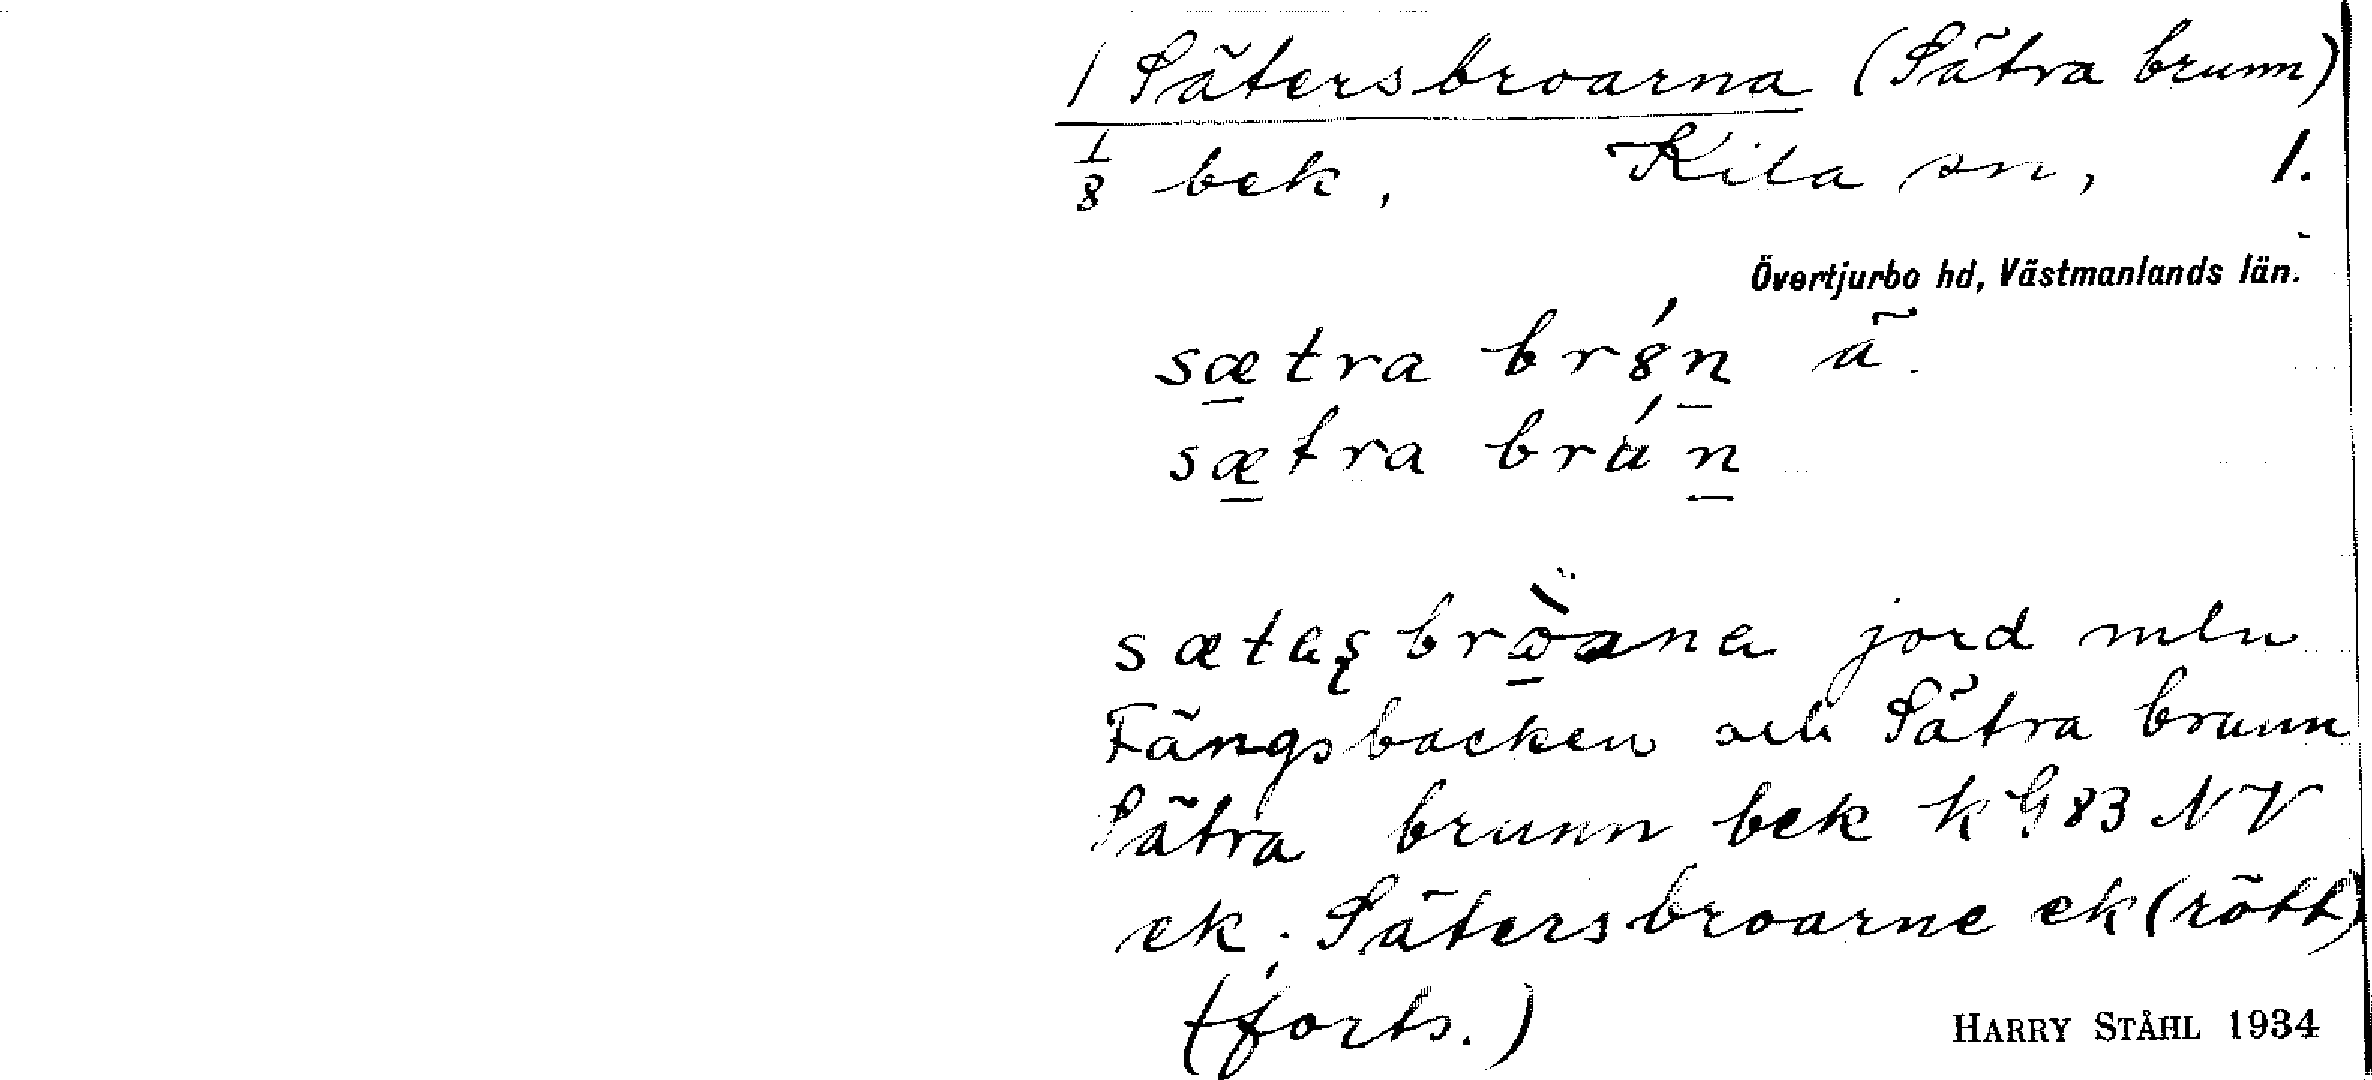 1 Sätersbroarna (Sätra brunn)
1/8 bek, Kila sn, 1.
Övertjurbo hd, Västmanlands län.
sætra br8́n ä.
sætra brún
sætesbròana jord mln
Fängsbacken och Sätra brunn
Sätra brunn bek k G83 NV
ek; Sätersbroarne ek (rött)
(forts.)
HARRY STÅHL 1934